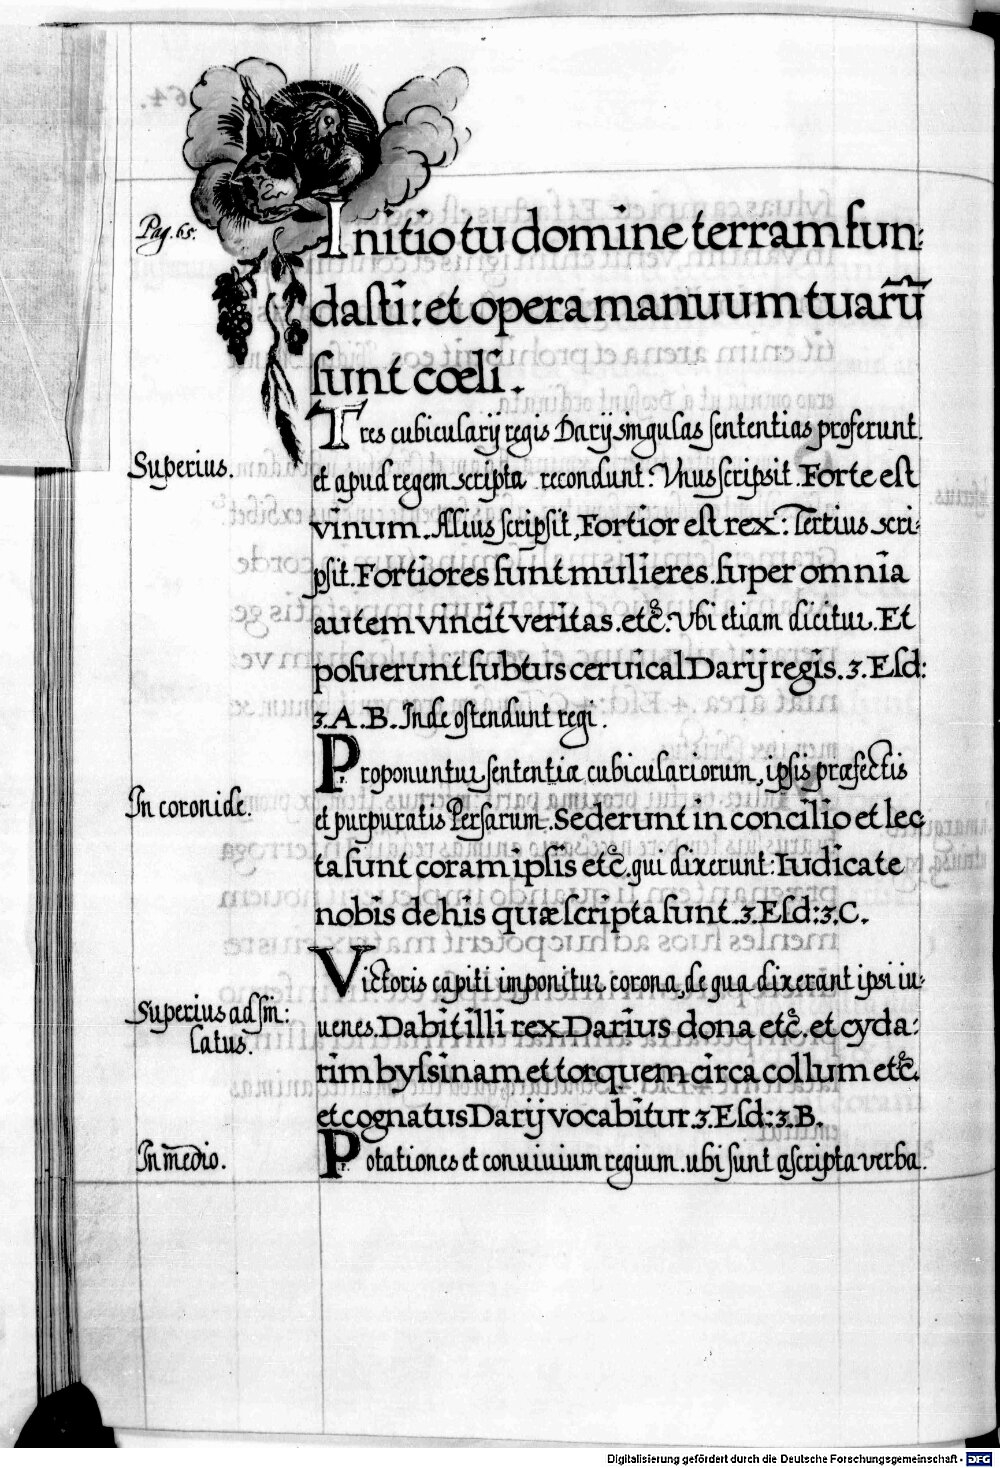 Pag. 65.
Initio tu domine terram fun-
dasti: et opera manuum tuarũ
sunt cœli.
Superius.
Tres cubicularij regis Darij singulas sententias proferunt.
et apud regem scripta recondunt: Vnus scripsit. Forte est
vinum. Alius scripsit, Fortior est rex: Tertius scri-
psit. Fortiores sunt mulieres. super omnia
autem vincit veritas. etc̃. Vbi etiam dicitur. Et
posuerunt subtus ceruical Darij regis. 3. Esd:
3. A. B. Inde ostendunt regi.
In coronide.
Proponuntur sententiæ cubiculariorum, ipsis præfectis
et purpuratis Persarum. Sederunt in concilio et lec
ta sunt coram ipsis etc̃. qui dixerunt: Iudicate
nobis de his quæ scripta sunt. 3. Esd: 3. C.
Superius ad sin̄:
latus.
Victoris capiti imponitur corona, de qua dixerant ipsi iu-
uenes. Dabit illi rex Darius dona etc̃. et cyda:
rim byssinam et torquem circa collum etc̃.
et cognatus Darij vocabitur. 3. Esd: 3. B.
In medio.
Potationes et conuiuium regium. ubi sunt ascripta verba.
Digitalisierung gefördert durch die Deutsche Forschungsgemeinschaft - DFG